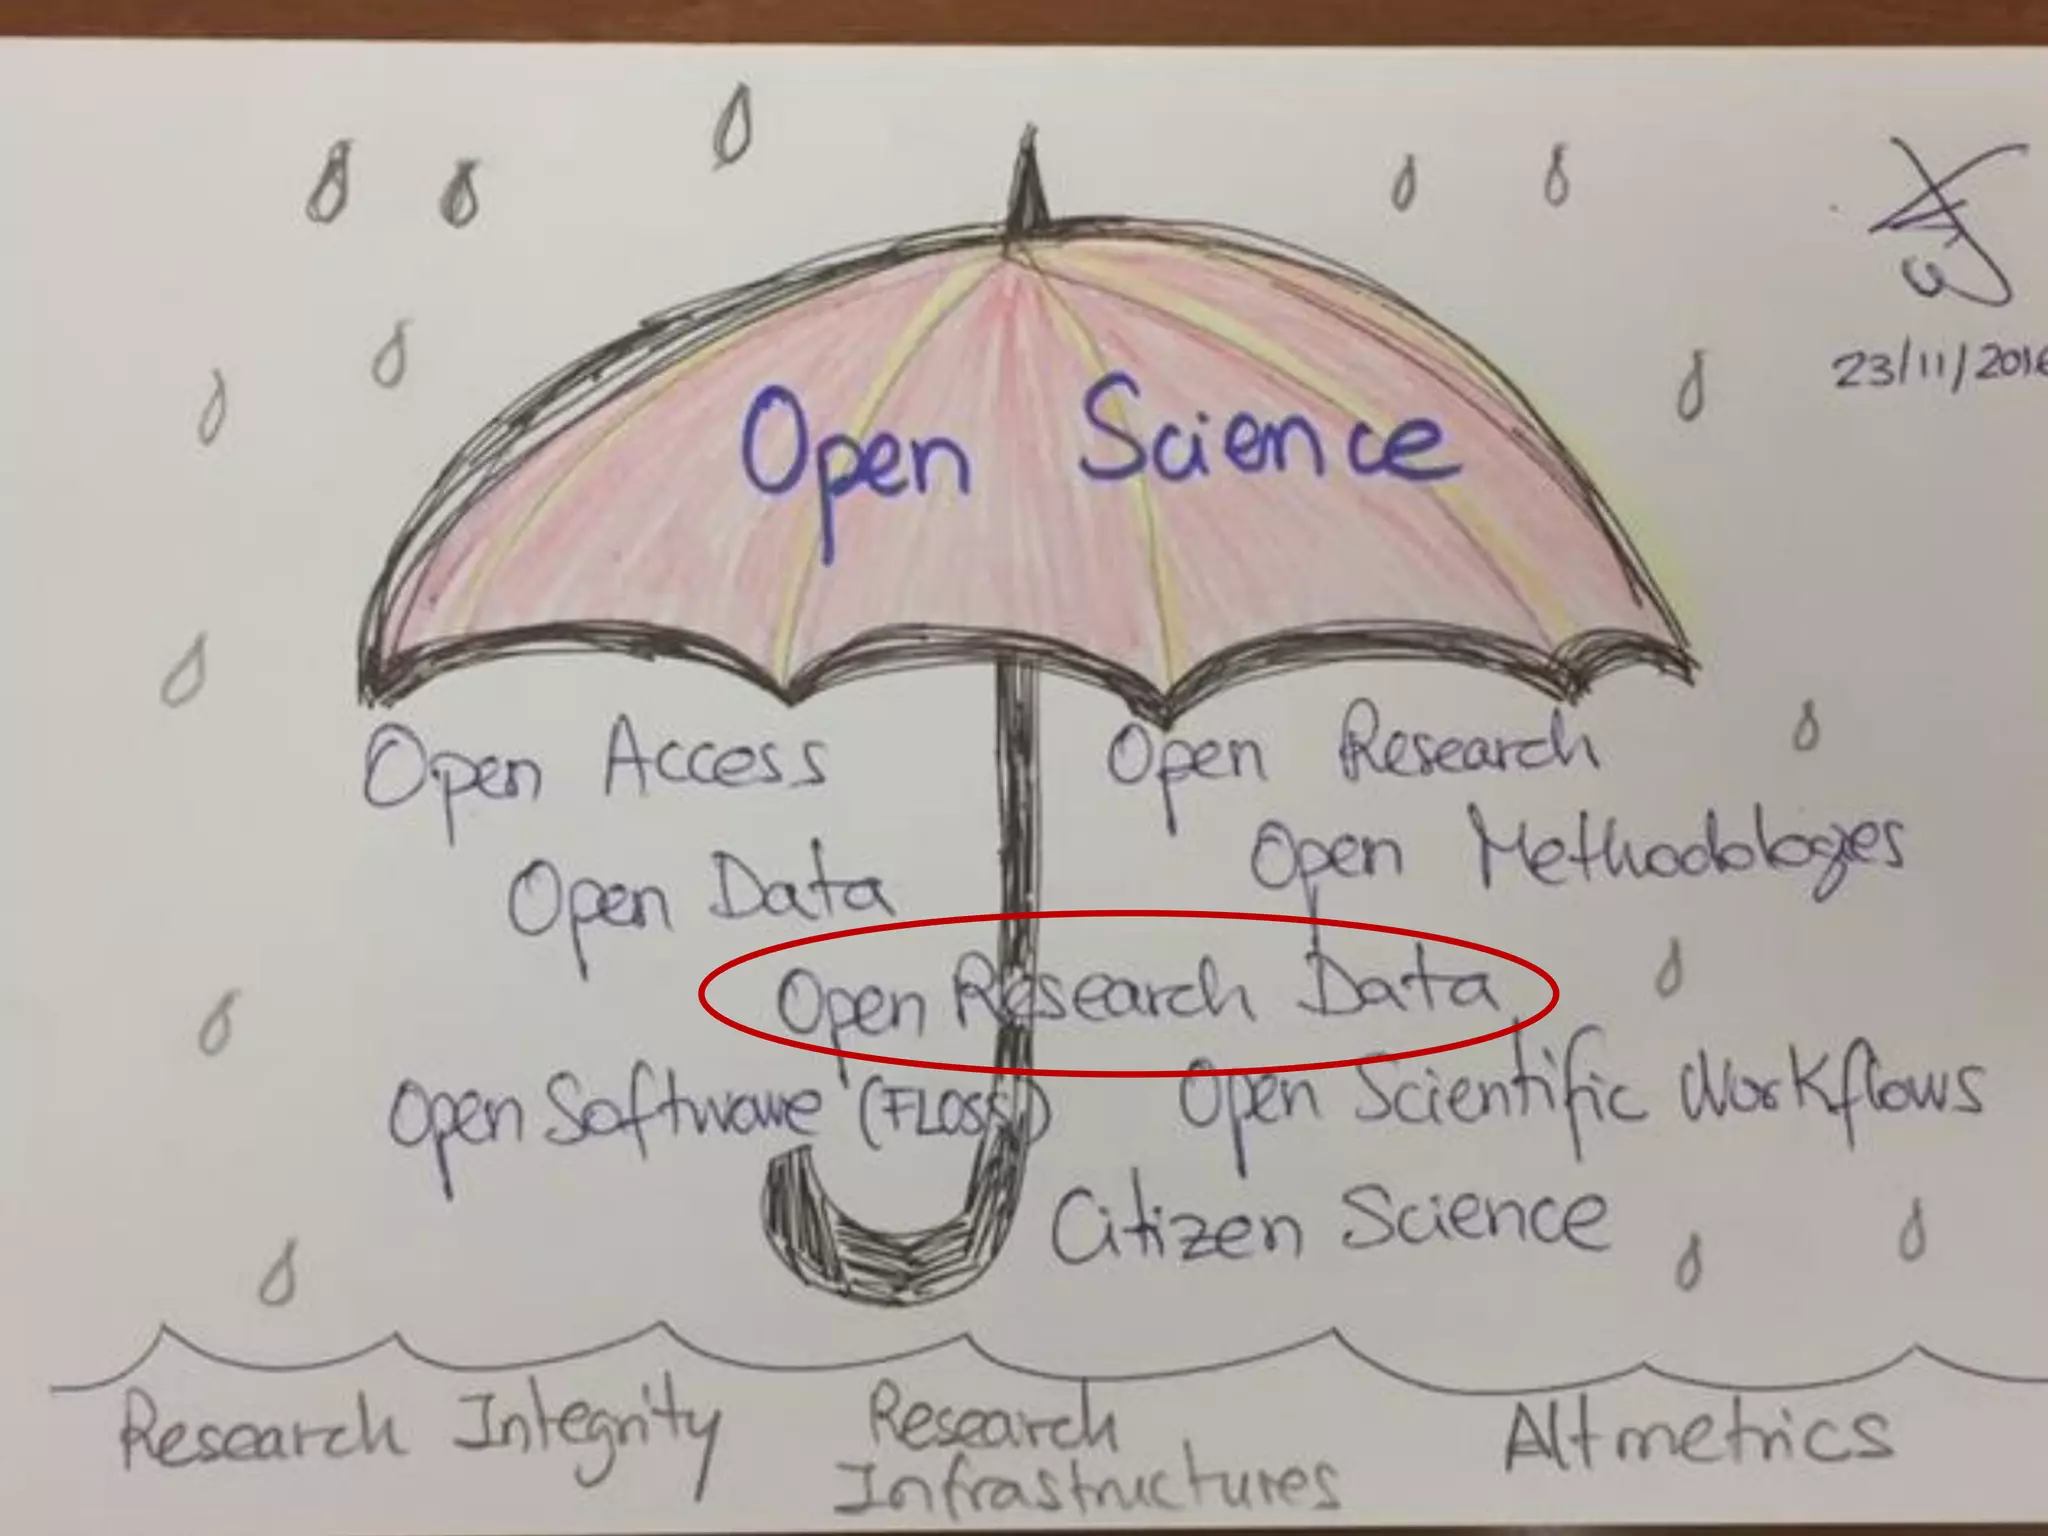 23/11/2016
Open Science
Open Access
Open Research
Open Data
Open Methodologies
Open Research Data
Open Software (FLOSS)
Open Scientific Workflows
Citizen Science
Research Integrity
Research
Infrastructures
Altmetrics